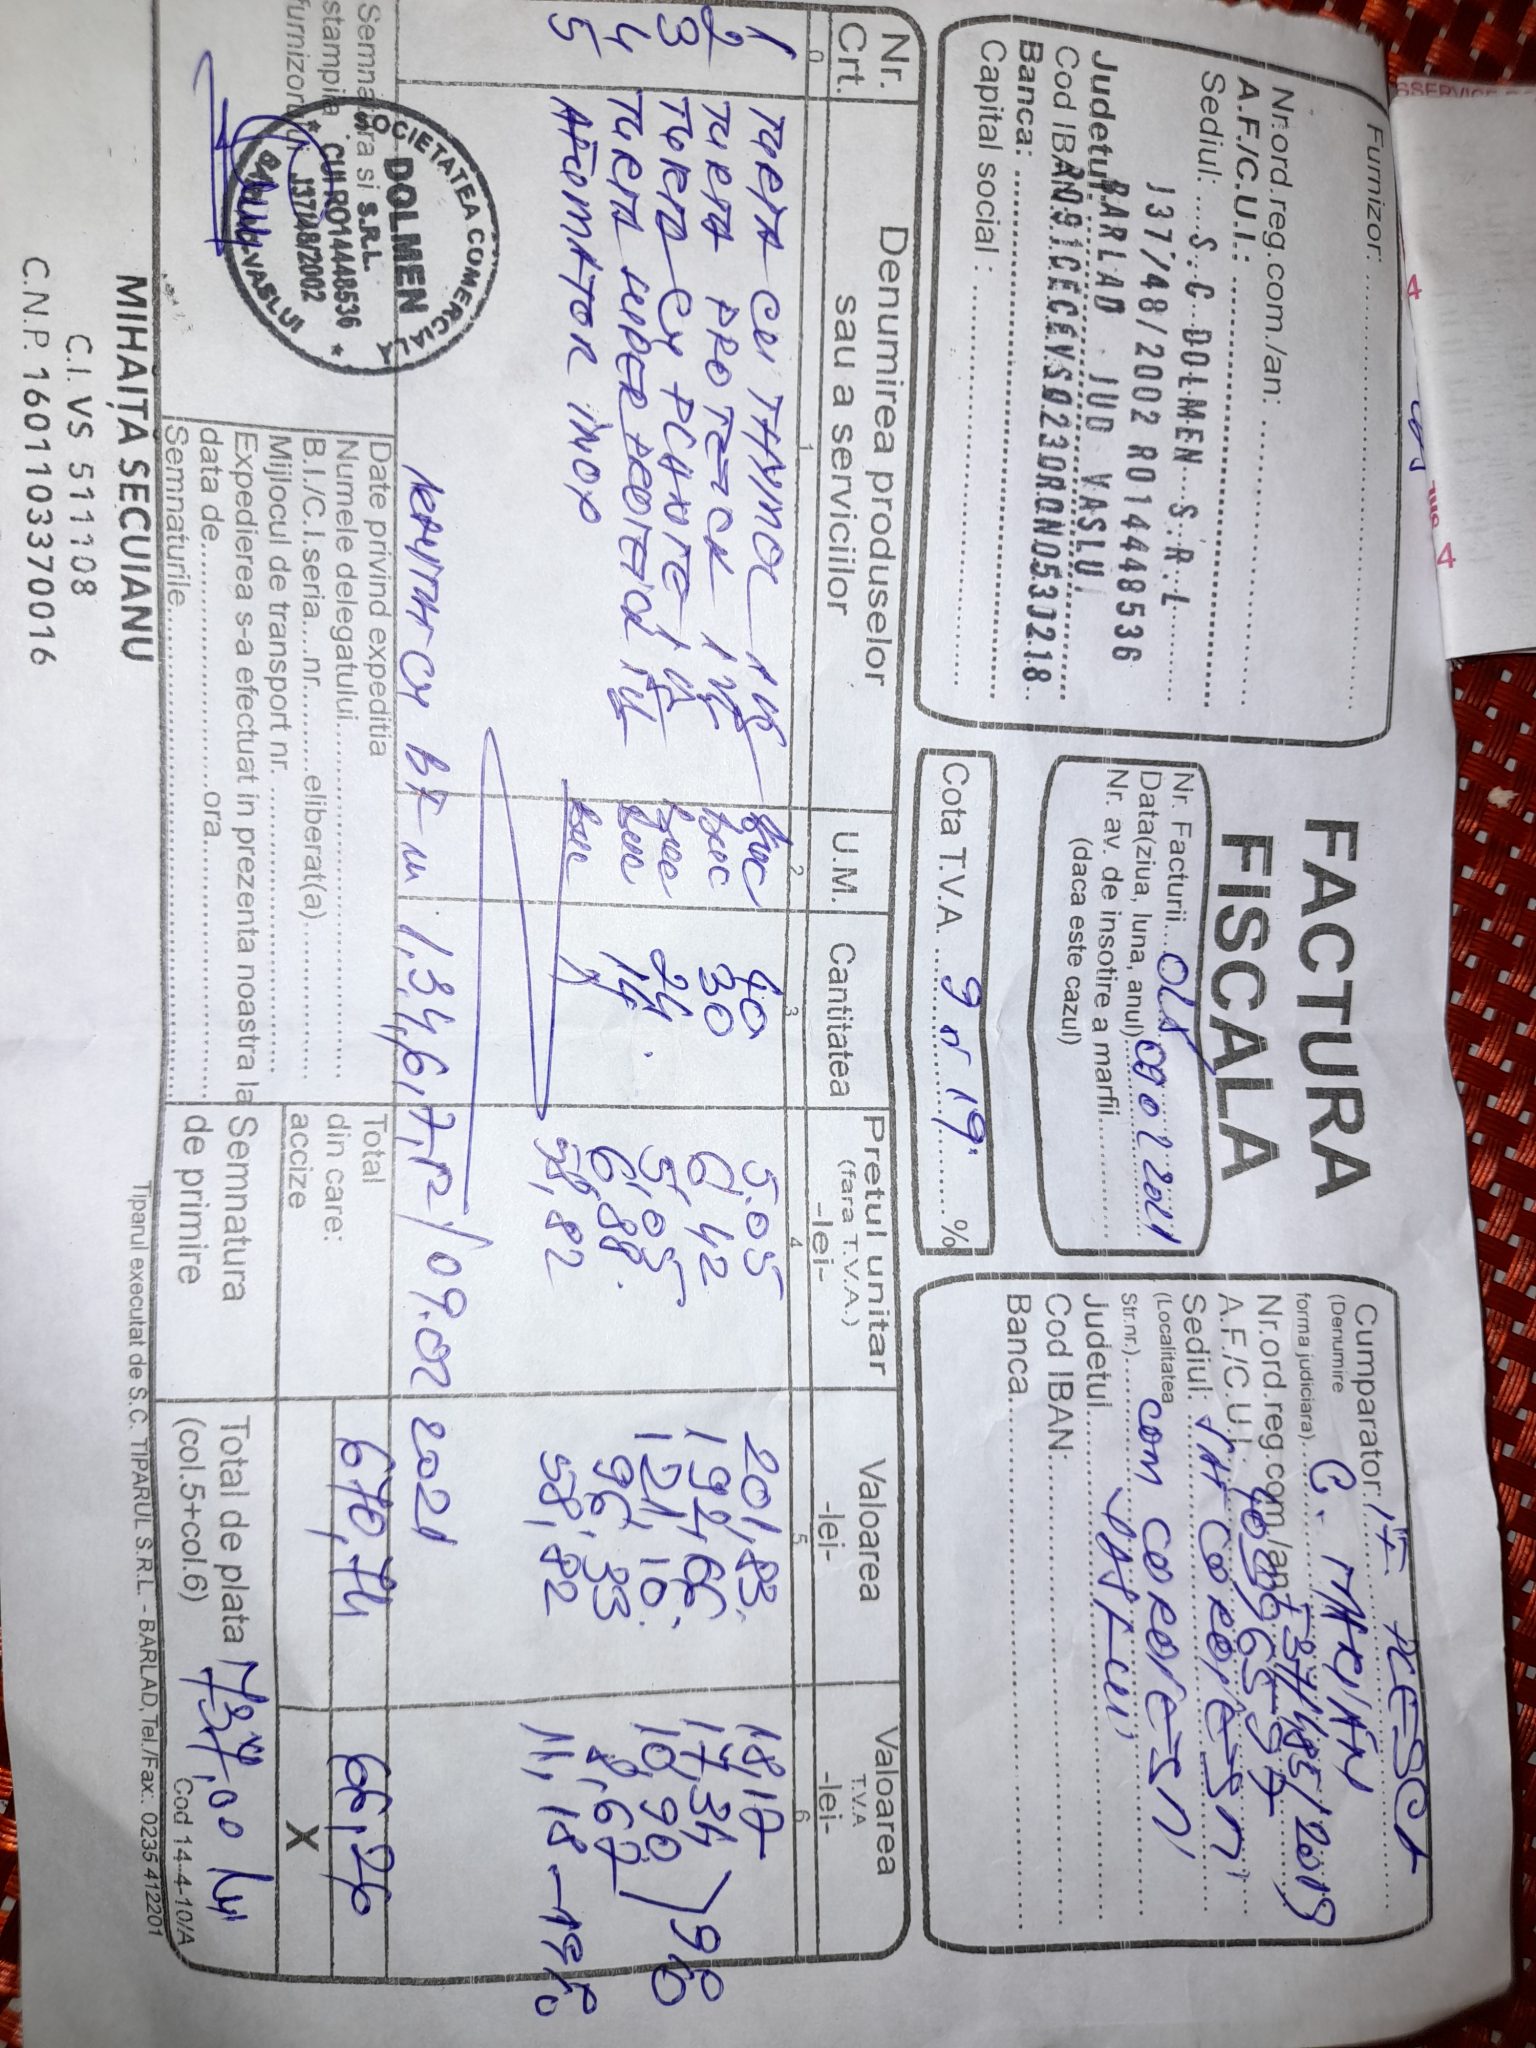 Furnizor:
Nr.ord.reg.com./an:
A.F./C.U.I.:
Sediul: S.C DOLMEN S.R.L
J37/48/2002 RO14448536
Judetul: BARLAD JUD VASLUI
Cod IBAN:
Banca:
Capital social :
FACTURA
FISCALA
Nr. Facturii
Data(ziua, luna, anul) 09 02 2021
Nr. av. de insotire a marfii
(daca este cazul)
Cota T.V.A. 9 si 19 %
Cumparator:
(Denumire
C. MARIAN
forma judiciara)
Nr.ord.reg.com/an: F37/485/2019
A.F./C.U.I.
Sediul: SAT COROIESTI
(Localitatea COM COROIESTI
Str.nr.)
Judetul VASLUI
Cod IBAN:
Banca
Nr. Crt.
Denumirea produselor sau a serviciilor
U.M.
Cantitatea
Pretul unitar (fara T.V.A.) -lei-
Valoarea -lei-
Valoarea T.V.A -lei-
0 1 2 3 4 5 6
1 TURTA CU THYMOL buc 40 5.05 201,83 18,17
2 TURTA PROTEICA buc 30 6,42 192,66 17,34
3 TURTA CU buc 24 5,05 121,10 10,90
4 TURTA HIPERPROTEICA buc 14 6,88 96,33 8,67
5 AFUMATOR INOX buc 1 58,82 58,82 11,18 - 19%
9%
1,3,4,6,7, 09.02 2021
Semnatura si stampila furnizorului
SOCIETATEA COMERCIALĂ
DOLMEN
S.R.L.
CUI RO14448536
J37/48/2002
VASLUI
Date privind expeditia
Numele delegatului
B.I./C.I.seria....nr........eliberat(a)
Mijlocul de transport nr.
Expedierea s-a efectuat in prezenta noastra la
data de....................ora
Semnaturile
Total 670,74 66,26
din care:
accize X
Semnatura de primire
Total de plata 737,00 lei
(col.5+col.6)
Cod 14-4-10/A
Tiparul executat de S.C. TIPARUL S.R.L. - BARLAD, Tel./Fax: 0235 412201
MIHAIȚA SECUIANU
C.I. VS 511108
C.N.P. 1601103370016